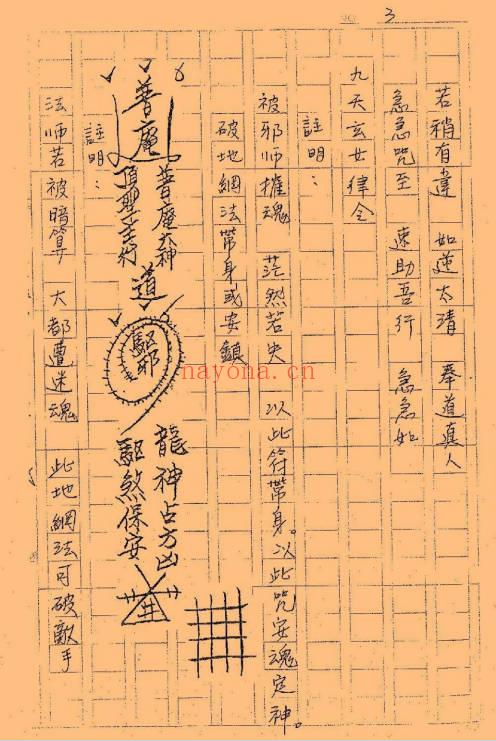 NO. 3
若稍有違 如逆太清 奉道真人
急急咒至 速助吾行 急急如
九天玄女律令
註明：
被邪师摧魂 茫然若失 以此符帶身。以此咒安魂定神。
破地網法帶身或安鎮
普庵
普庵大神
道
驅邪
龍神占方凶
驅煞保安
註明：
法师若被暗算 大都遭迷魂 此地網法可破敵手
nayona.cn